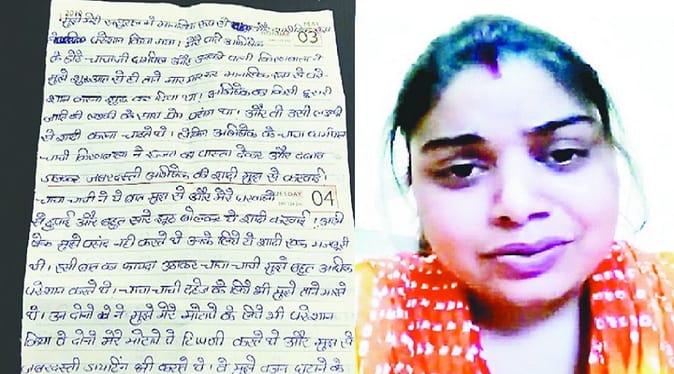 2018
मुझे मेरी ससुराल में मानसिक रूप से और
MAY
03
परेशान किया गया। मेरे पति अभिषेक
के छोटे चाचाजी धर्मपाल और उनकी पत्नी किरणबाला ने
मुझे शुरुआत से ही ताने मार मारकर मानसिक रूप से परे-
शान करना शुरू कर दिया था। अभिषेक का किसी दूसरी
जाति की लड़की के साथ प्रेम प्रसंग था। और वो उसी लड़की
से शादी करना चाहते थे। लेकिन अभिषेक के चाचा धर्मपाल
चाची किरणबाला ने इज्जत का वास्ता देकर और दबाव
डालकर जबरदस्ती अभिषेक की शादी मुझ से करवाई।
चाचा चाची ने ये बात मुझ से और मेरे घरवालों
DAY
04
से छुपाई और बहुत सारे झूठ बोलकर ये शादी करवाई। अभी
षेक मुझे पसंद नहीं करते थे उनके लिये ये शादी एक मजबूरी
थी। इसी बात का फायदा उठाकर चाचा चाची मुझे बहुत अधिक
परेशान करते थे। चाचा चाची दहेज के लिये भी मुझे ताने मारते
थे। उन दोनों ने मुझे मेरे मोटापे के लिए भी परेशान
किया वे दोनों मेरे मोटापे पे टिप्पणी करते थे और मुझ से
जबरदस्ती डायटिंग भी कराते थे। वे मुझे वजन घटाने के